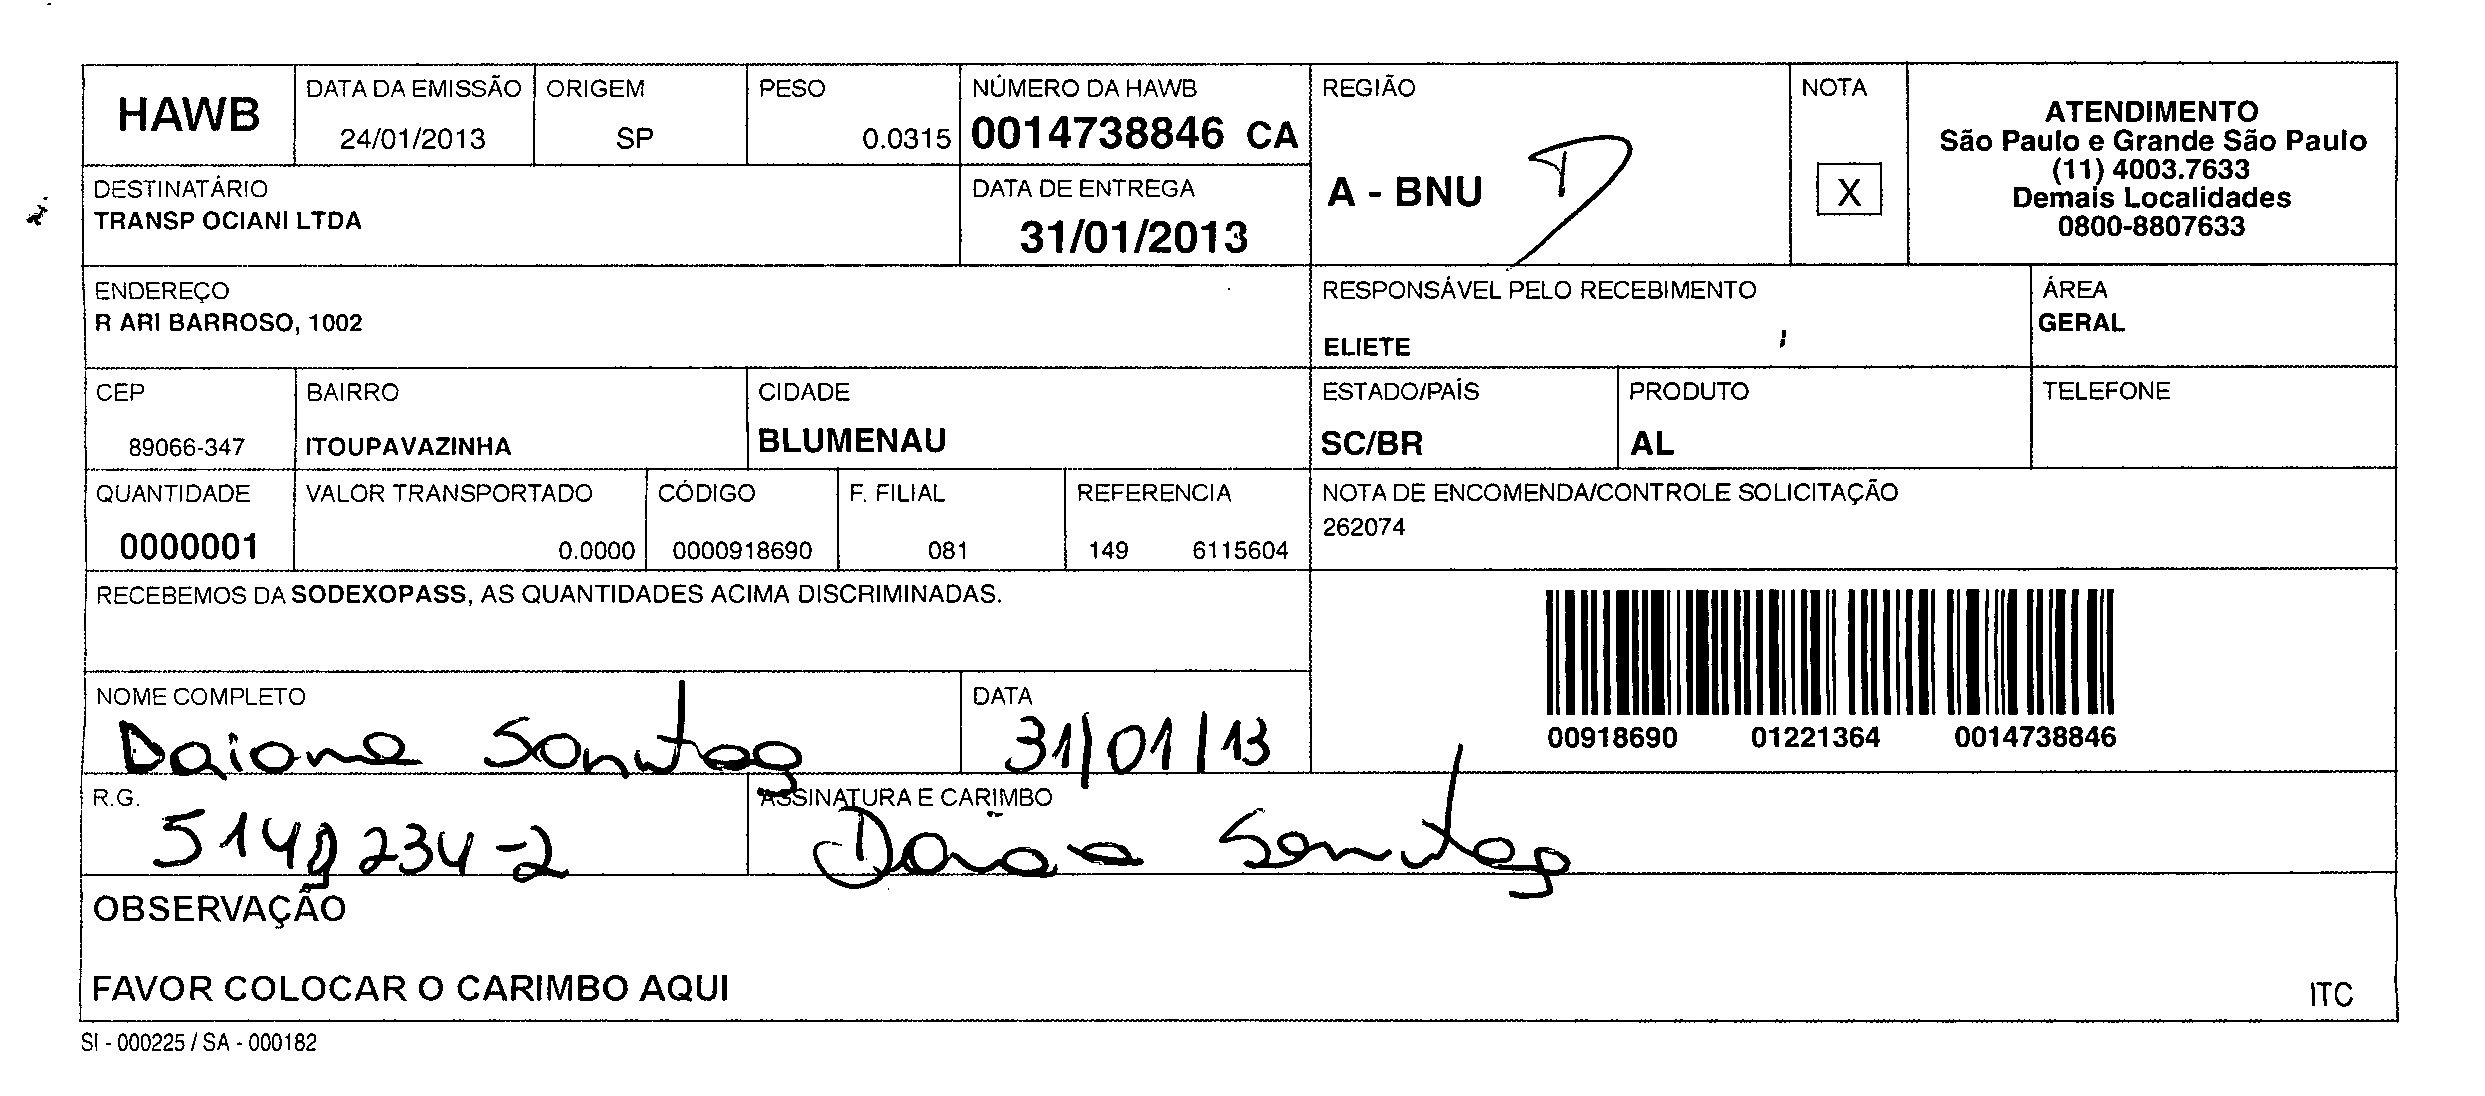 HAWB
DATA DA EMISSÃO
24/01/2013
ORIGEM
SP
PESO
0.0315
NÚMERO DA HAWB
0014738846 CA
REGIÃO
A - BNU
NOTA
X
ATENDIMENTO
São Paulo e Grande São Paulo
(11) 4003.7633
Demais Localidades
0800-8807633
DESTINATÁRIO
TRANSP OCIANI LTDA
DATA DE ENTREGA
31/01/2013
ENDEREÇO
R ARI BARROSO, 1002
RESPONSÁVEL PELO RECEBIMENTO
ELIETE
ÁREA
GERAL
CEP
89066-347
BAIRRO
ITOUPAVAZINHA
CIDADE
BLUMENAU
ESTADO/PAÍS
SC/BR
PRODUTO
AL
TELEFONE
QUANTIDADE
0000001
VALOR TRANSPORTADO
0.0000
CÓDIGO
0000918690
F. FILIAL
081
REFERENCIA
149 6115604
NOTA DE ENCOMENDA/CONTROLE SOLICITAÇÃO
262074
RECEBEMOS DA SODEXOPASS, AS QUANTIDADES ACIMA DISCRIMINADAS.
00918690 01221364 0014738846
NOME COMPLETO
Daiane Sonntag
DATA
31/01/13
R.G.
ASSINATURA E CARIMBO
OBSERVAÇÃO
FAVOR COLOCAR O CARIMBO AQUI
ITC
SI - 000225 / SA - 000182